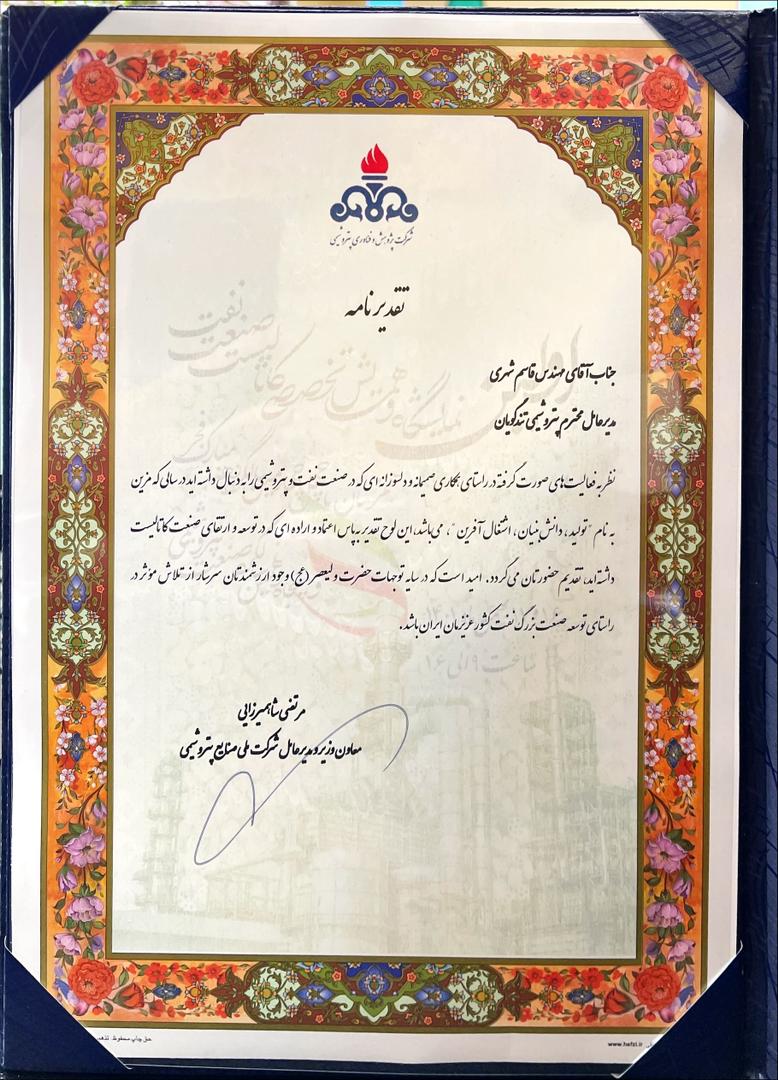 شرکت پژوهش و فناوری پتروشیمی
تقدیرنامه
جناب آقای مهندس قاسم شهری
مدیرعامل محترم پتروشیمی تندگویان
نظر به فعالیت‌های صورت گرفته در راستای همکاری صمیمانه و دلسوزانه ای که در صنعت نفت و پتروشیمی را به دنبال داشته اید در سالی که مزین
به نام "تولید، دانش بنیان، اشتغال آفرین"، می‌باشد، این لوح تقدیر به پاس اعتماد و اراده ای که در توسعه و ارتقای صنعت کاتالیست
داشته‌اید، تقدیم حضورتان می‌گردد. امید است که در سایه توجهات حضرت ولیعصر (عج) وجود ارزشمندتان سرشار از تلاش مؤثر در
راستای توسعه صنعت بزرگ نفت کشور عزیزمان ایران باشد.
مرتضی شاهمیرزایی
معاون وزیر و مدیرعامل شرکت ملی صنایع پتروشیمی
اولین
نمایشگاه و همایش تخصصی کاتالیست
صنعت نفت
ساعت ۹ الی ۱۶
حق چاپ محفوظ
www.hafzi.ir